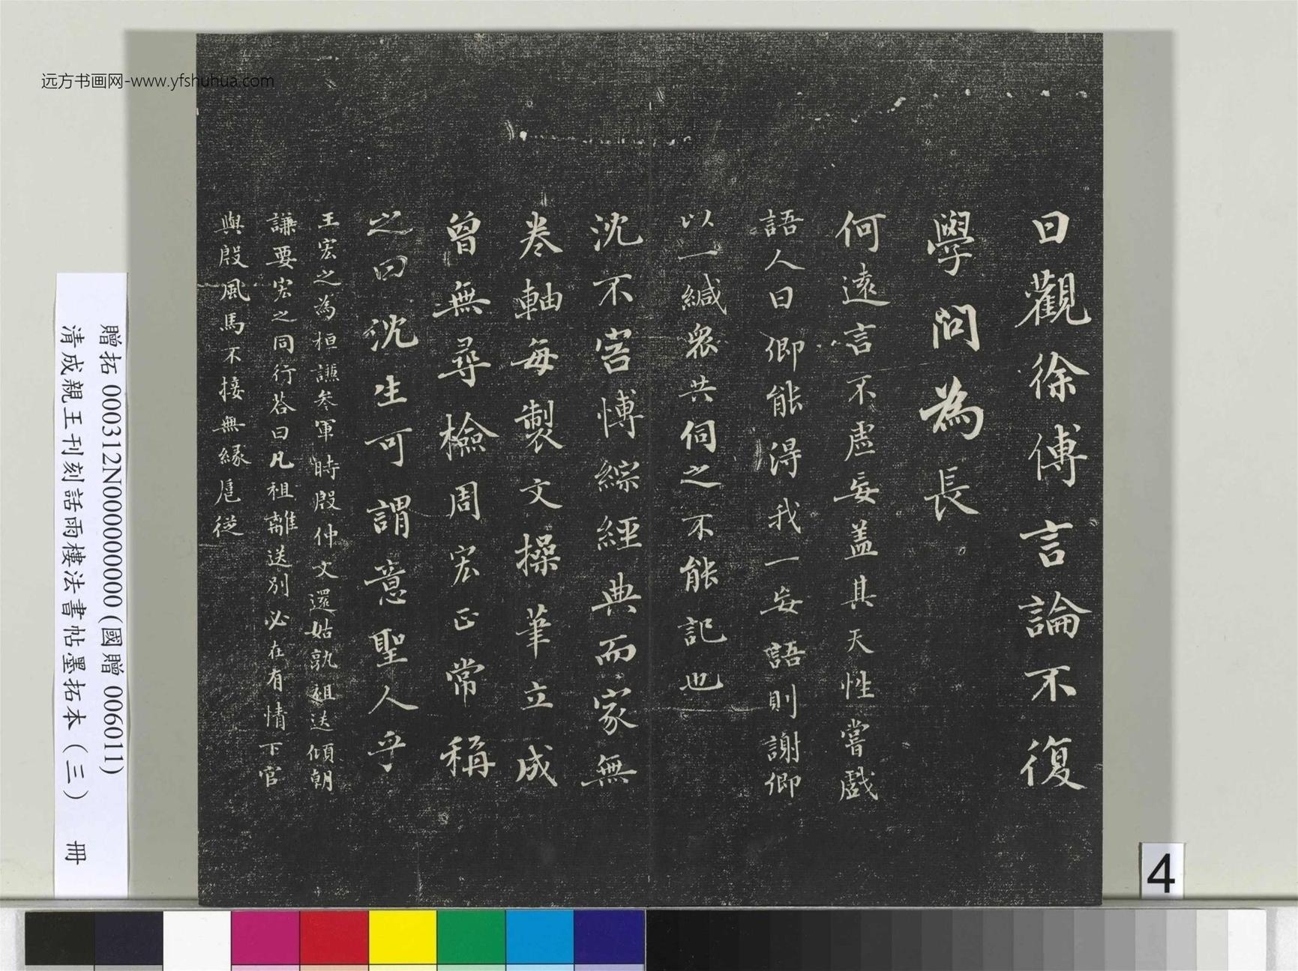 远方书画网-www.yfshuhua.com
曰觀徐傅言論不復
學問為長
何遠言不虛妄盖其天性嘗戲
語人曰卿能得我一妄語則謝卿
以一縑衆共伺之不能記也
沈不害博綜經典而家無
卷軸每製文操筆立成
曾無尋檢周宏正常稱
之曰沈生可謂意聖人乎
王宏之為桓謙参軍時殷仲文還姑孰祖送傾朝
謙要宏之同行荅曰凡祖離送別必在有情下官
與殷風馬不接無緣扈從
贈拓 000312N000000000(國贈 006011)
清成親王刊刻話雨樓法書帖墨拓本（三） 冊
4